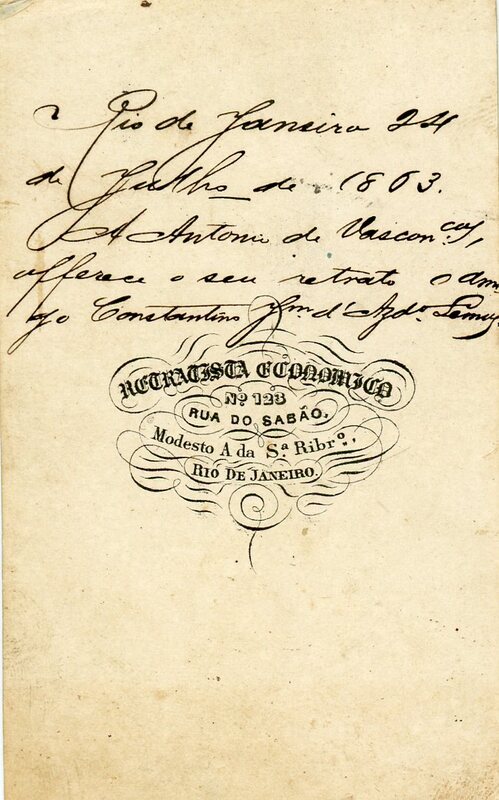 Rio de Janeiro 24
de Julho de 1863.
A Antonio de Vascon.cos,
offerece o seu retrato o ami
go Constantino Jm. d'Azdo. Lemos
RETRATISTA ECONOMICO
Nº 123
RUA DO SABÃO,
Modesto A da S.a Ribr.o,
RIO DE JANEIRO